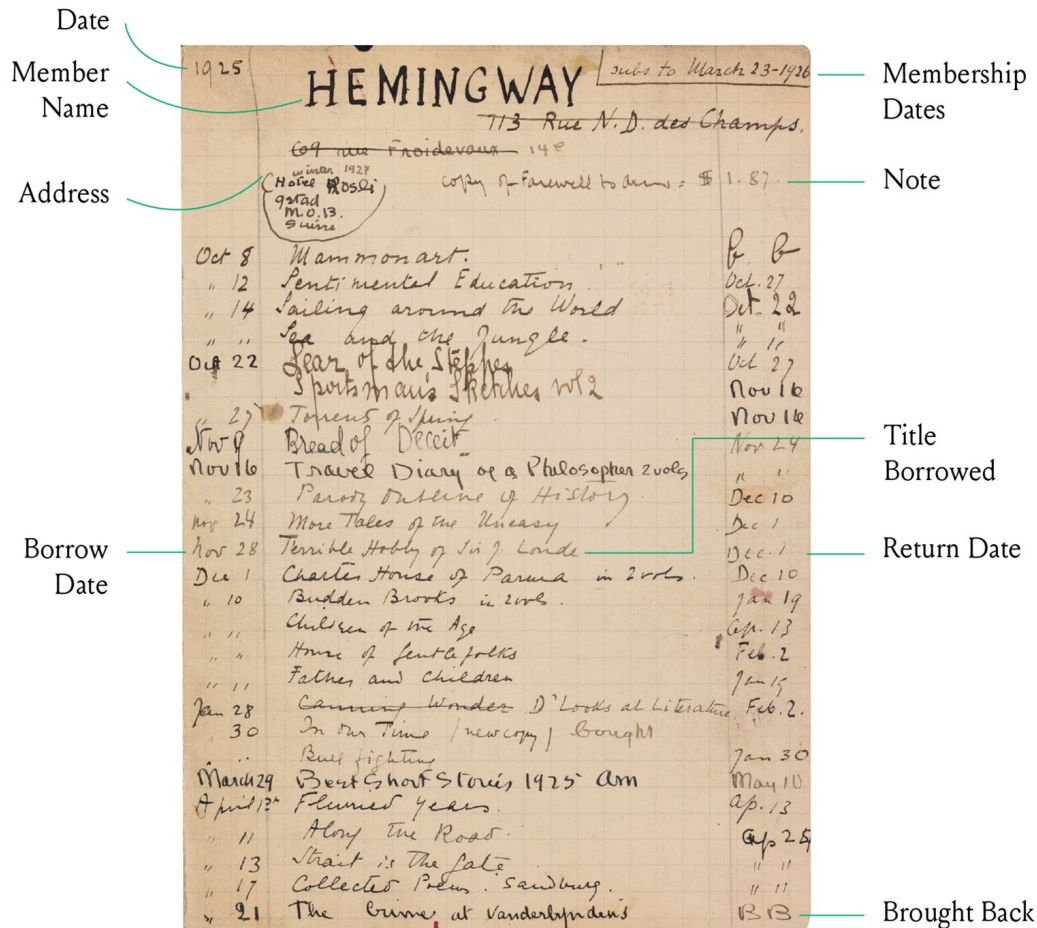 Date
1925
Member Name
HEMINGWAY
subs to March 23-1926
Membership Dates
113 Rue N. D. des Champs.
69 rue Froidevaux 14e
Address
winter 1927
Hotel Rosli
gstad
M.O.B.
Suiss
copy of Farewell to Arms = $1.87.
Note
Oct 8 Mammonart. B B
" 12 Sentimental Education Oct. 27
" 14 Sailing around the World Oct 22
" " Sea and the Jungle. " "
Oct 22 Lear of the Steppes Oct 27
Sportsman's Sketches vol 2 Nov 16
" 27 Torrents of Spring Nov 16
Nov 9 Bread of Deceit Nov 24
Title Borrowed
Nov 16 Travel Diary of a Philosopher 2 vols " "
" 23 Parody Outline of History. Dec 10
Nov 24 More Tales of the Uneasy Dec 1
Borrow Date
Nov 28 Terrible Hobby of Sir J. Londe Dec. 1
Return Date
Dec 1 Charter House of Parma in 2 vols. Dec 10
" 10 Budden Brooks in 2 vols. Jan 19
" " Children of the Age Ap. 13
" " House of Gentlefolks Feb. 2
" " Fathers and Children Jan 19
Jan 28 Canning Wonder D'Looks at Literature Feb. 2.
30 In Our Time (new copy) bought
" " Bull fighting Jan 30
March 29 Best Short Stories 1925 Am May 10
April 1st Flurried Years. Ap. 13
" 11 Along the Road. Ap 25
" 13 Strait is the Gate " "
" 17 Collected Poems. Sandburg. " "
" 21 The Crime at Vanderlynden's B B
Brought Back